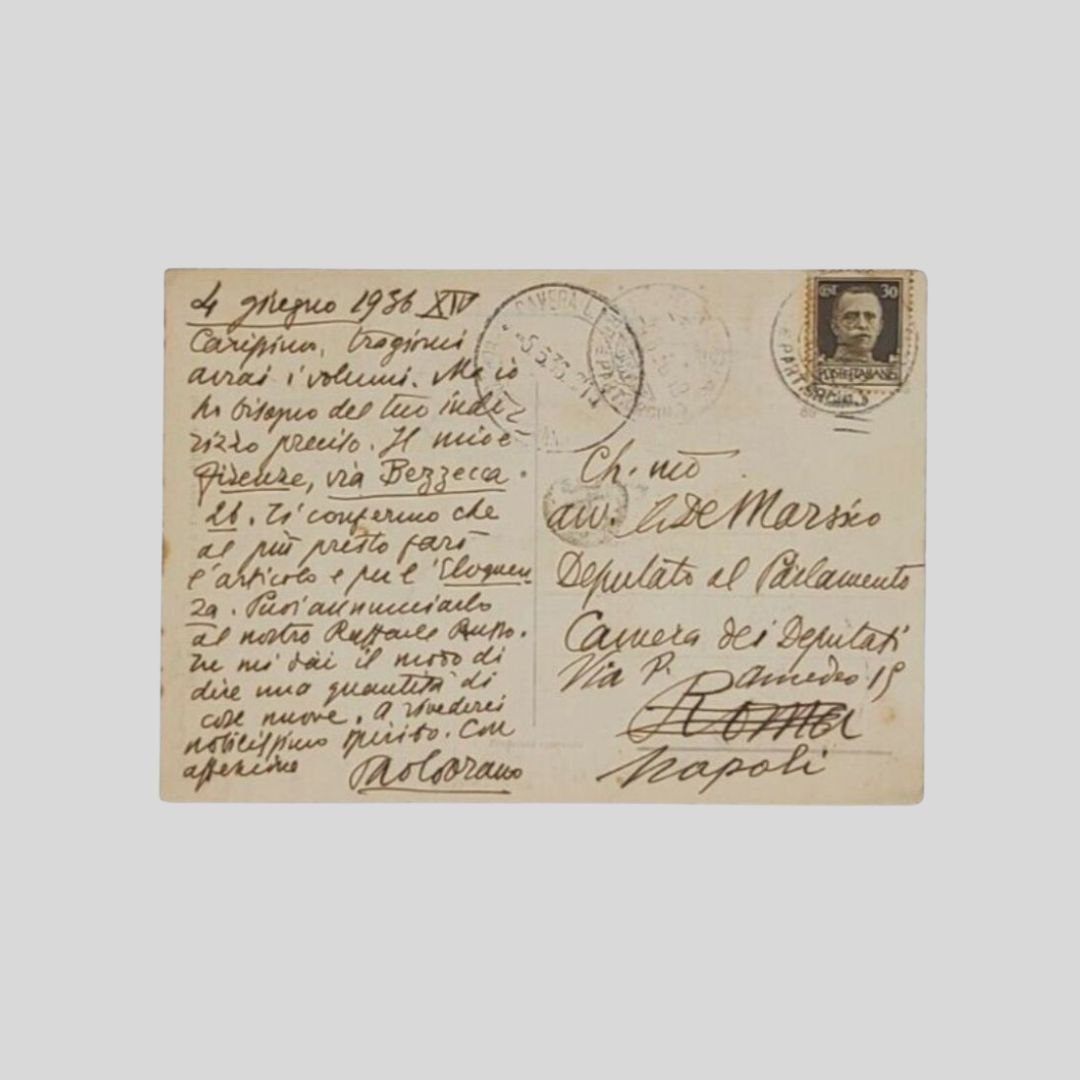 4 giugno 1936 XIV
Carissimo, tra giorni
avrai i volumi. Ma io
ho bisogno del tuo indi
rizzo preciso. Il mio è
Firenze, via Bezzecca
26. Ti confermo che
al più presto farò
l'articolo e per l'Eloquen
za. Puoi annunciarlo
al nostro Raffaele Russo.
Tu mi dai il modo di
dire una quantità di
cose nuove. A rivederci
nobilissimo spirito. Con
affezione Paolo Orano
CAMERA
CENT 30
POSTE ITALIANE
Ch. mo
avv. De Marsico
Deputato al Parlamento
Camera dei Deputati
Via P. Amedeo 15
Roma
Napoli